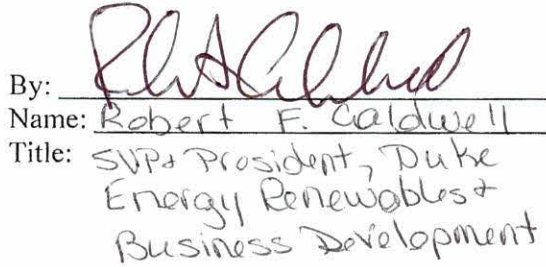 By:
Name: Robert F. Caldwell
Title: SVP & President, Duke
Energy Renewables &
Business Development